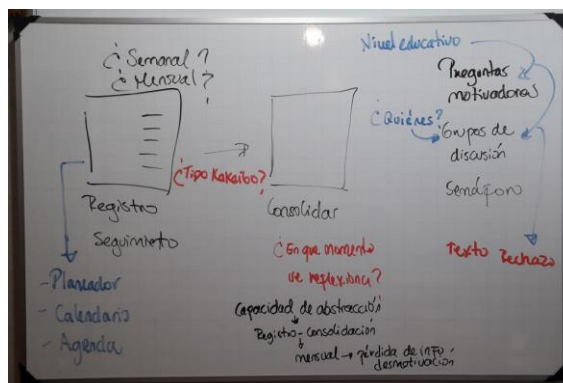 ¿Semanal?
¿Mensual?
¿Tipo Kakeibo?
Registro
Seguimiento
- Planeador
- Calendario
- Agenda
Consolidar
¿En que momento
se reflexiona?
Capacidad de abstracción
Registro - Consolidación
mensual → pérdida de info
desmotivación
Nivel educativo
Preguntas
motivadoras
¿Quiénes?
Grupos de
discusión
Texto Rechazo